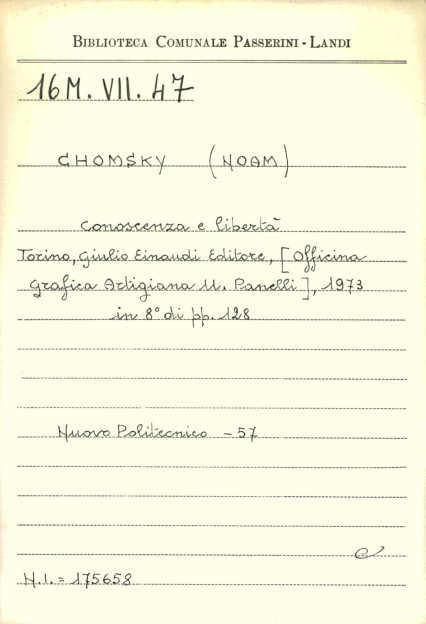 BIBLIOTECA COMUNALE PASSERINI - LANDI
16 M. VII. 47
CHOMSKY (NOAM)
Conoscenza e libertà
Torino, Giulio Einaudi Editore, [Officina
Grafica Artigiana U. Panelli], 1973
in 8° di pp. 128
Nuovo Politecnico - 57
N.I. = 175658